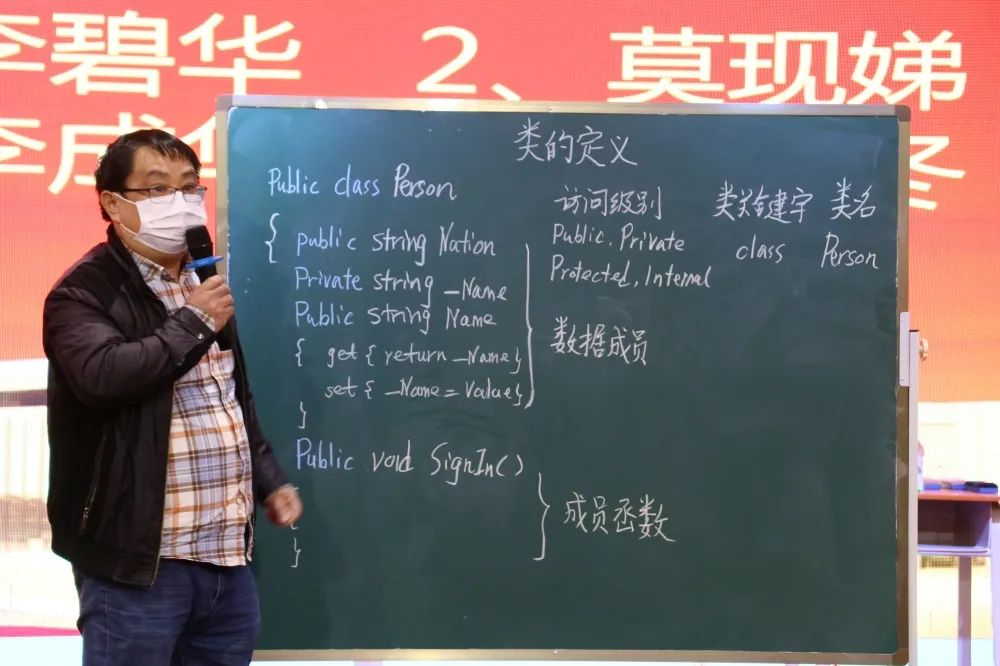 李碧华 2、莫现娣
李成
类的定义
Public class Person
{ public string Nation
Private string _Name
Public string Name
{ get { return _Name}
set { _Name = Value}
}
Public void SignIn()
{
}
访问级别 类关键字 类名
Public, Private class Person
Protected, Internal
数据成员
成员函数